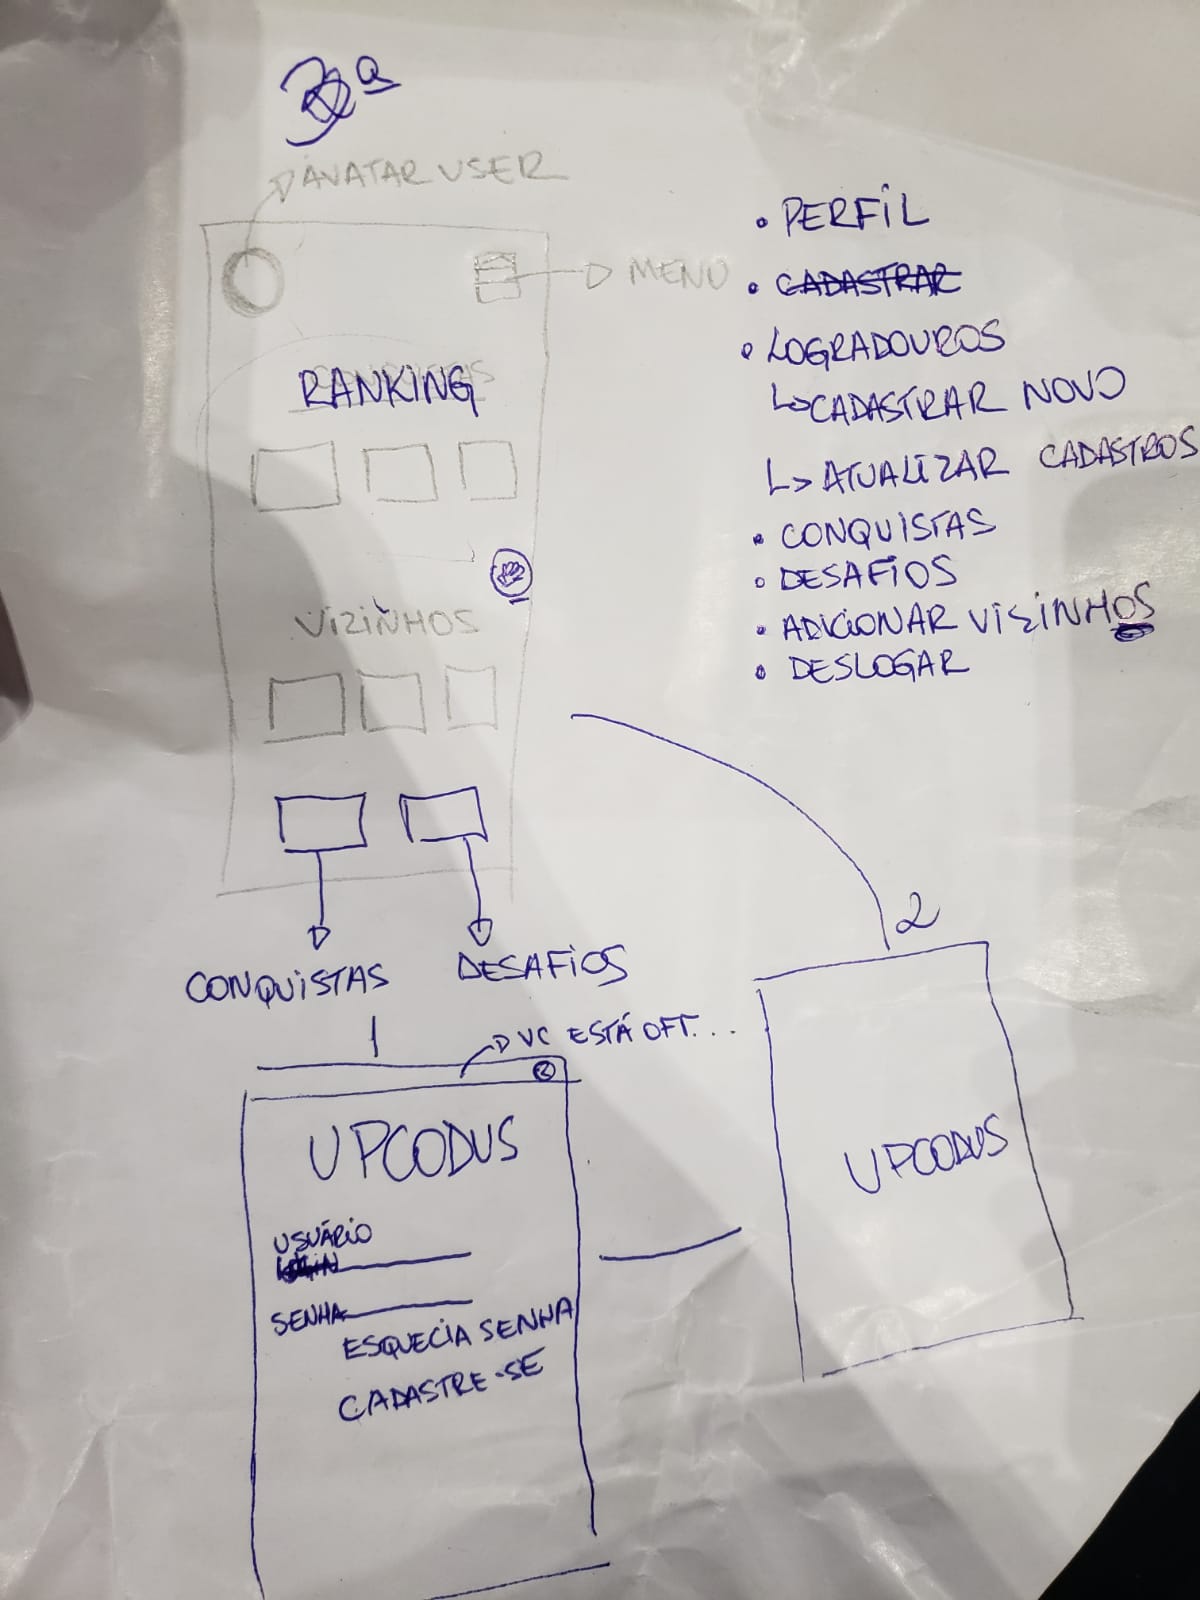 3ª
AVATAR USER
MENU
RANKING
VIZINHOS
CONQUISTAS
DESAFIOS
• PERFIL
• CADASTRAR
• LOGRADOUROS
↳ CADASTRAR NOVO
↳ ATUALIZAR CADASTROS
• CONQUISTAS
• DESAFIOS
• ADICIONAR VIZINHOS
• DESLOGAR
1
VC ESTÁ OFF...
UPCODUS
USUÁRIO
LOGIN
SENHA
ESQUECI A SENHA
CADASTRE-SE
2
UPCODUS